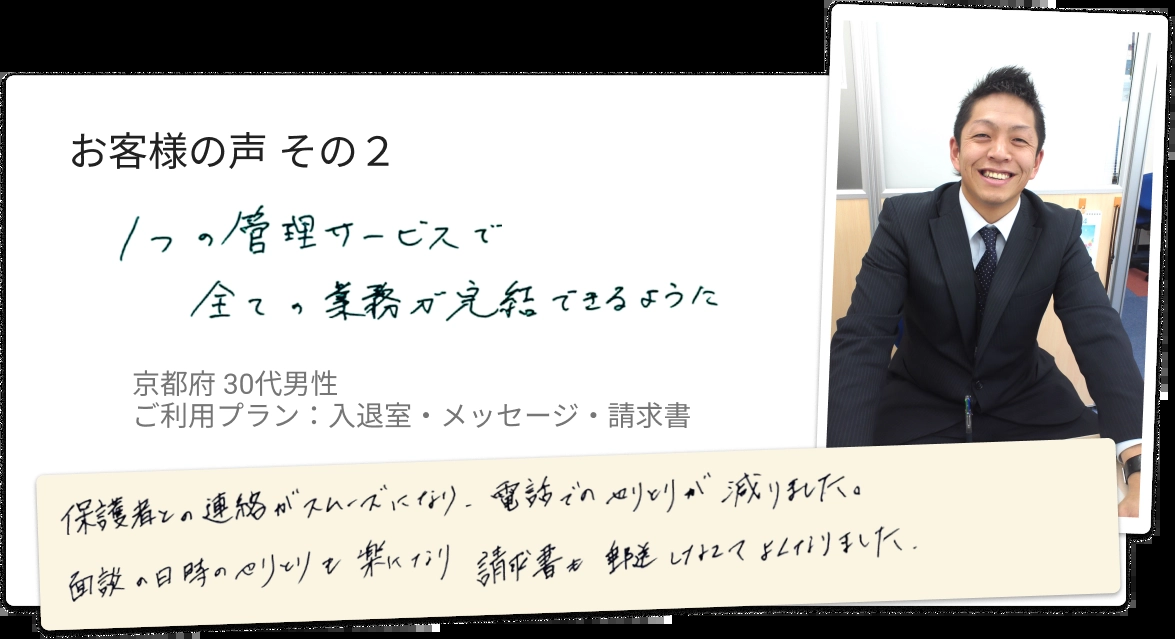 お客様の声 その２
1つの管理サービスで
全ての業務が完結できるように
京都府 30代男性
ご利用プラン：入退室・メッセージ・請求書
保護者との連絡がスムーズになり、電話でのやりとりが減りました。
面談の日時のやりとりも楽になり 請求書も郵送しなくてよくなりました.